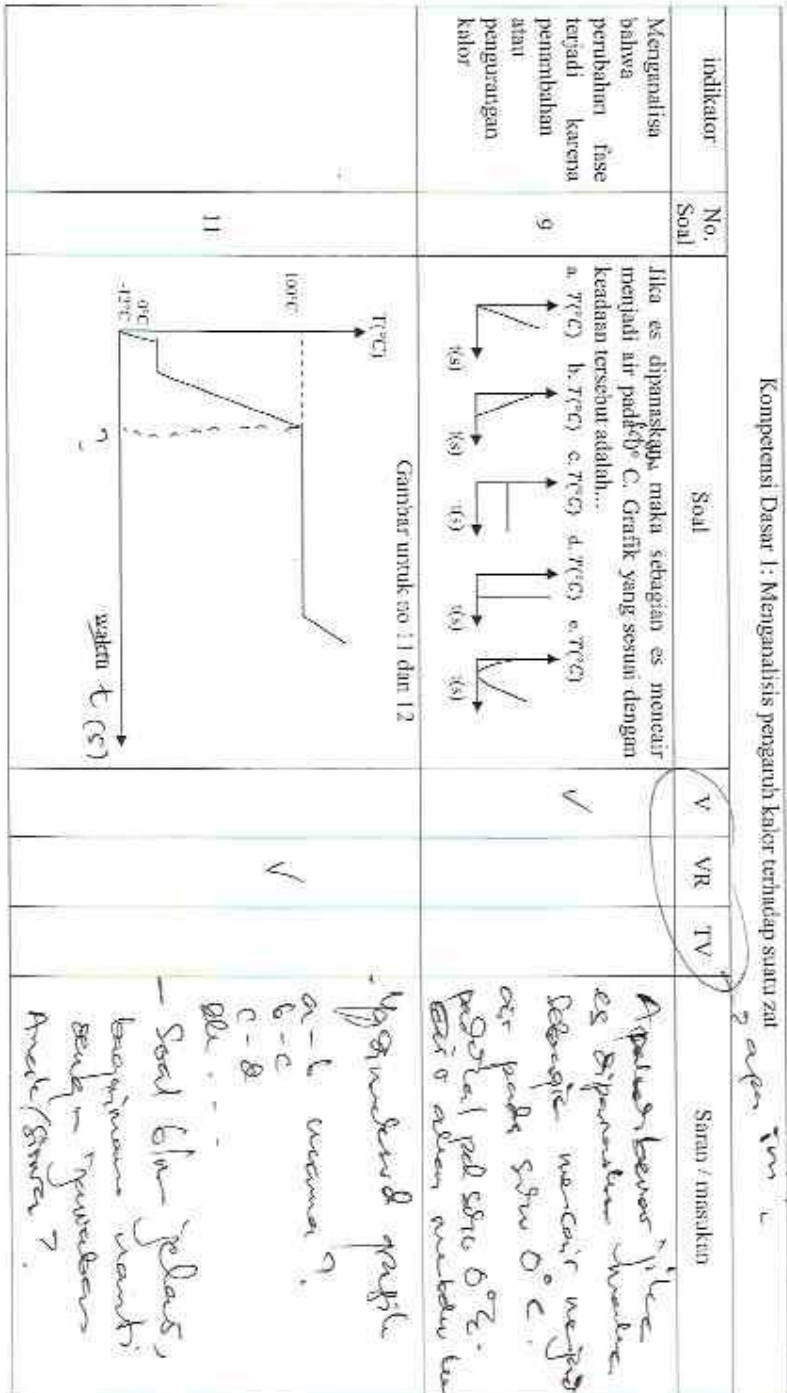 Kompetensi Dasar 1: Menganalisis pengaruh kalor terhadap suatu zat
apa
indikator
No.
Soal
Soal
V
VR
TV
Saran / masukan
Menganalisa
bahwa
perubahan fase
terjadi karena
penambahan
atau
pengurangan
kalor
9
Jika es dipanaskan maka sebagian es mencair
menjadi air pada 0° C. Grafik yang sesuai dengan
keadaan tersebut adalah...
a. T(°C) b. T(°C) c. T(°C) d. T(°C) e. T(°C)
t(s) t(s) t(s) t(s) t(s)
✓
Apakah benar jika
es dipanaskan maka
sebagian mencair menjadi
air pada suhu 0° C.
padahal pd suhu 0°C.
akan
11
Gambar untuk no 11 dan 12
T(°C)
100°C
0°C
-12°C
?
waktu t (s)
✓
grafik
a - b mana?
b - c
c - d
dll . . .
– Soal blm jelas,
bagaimana nanti
dengan jawaban
Anak/siswa?